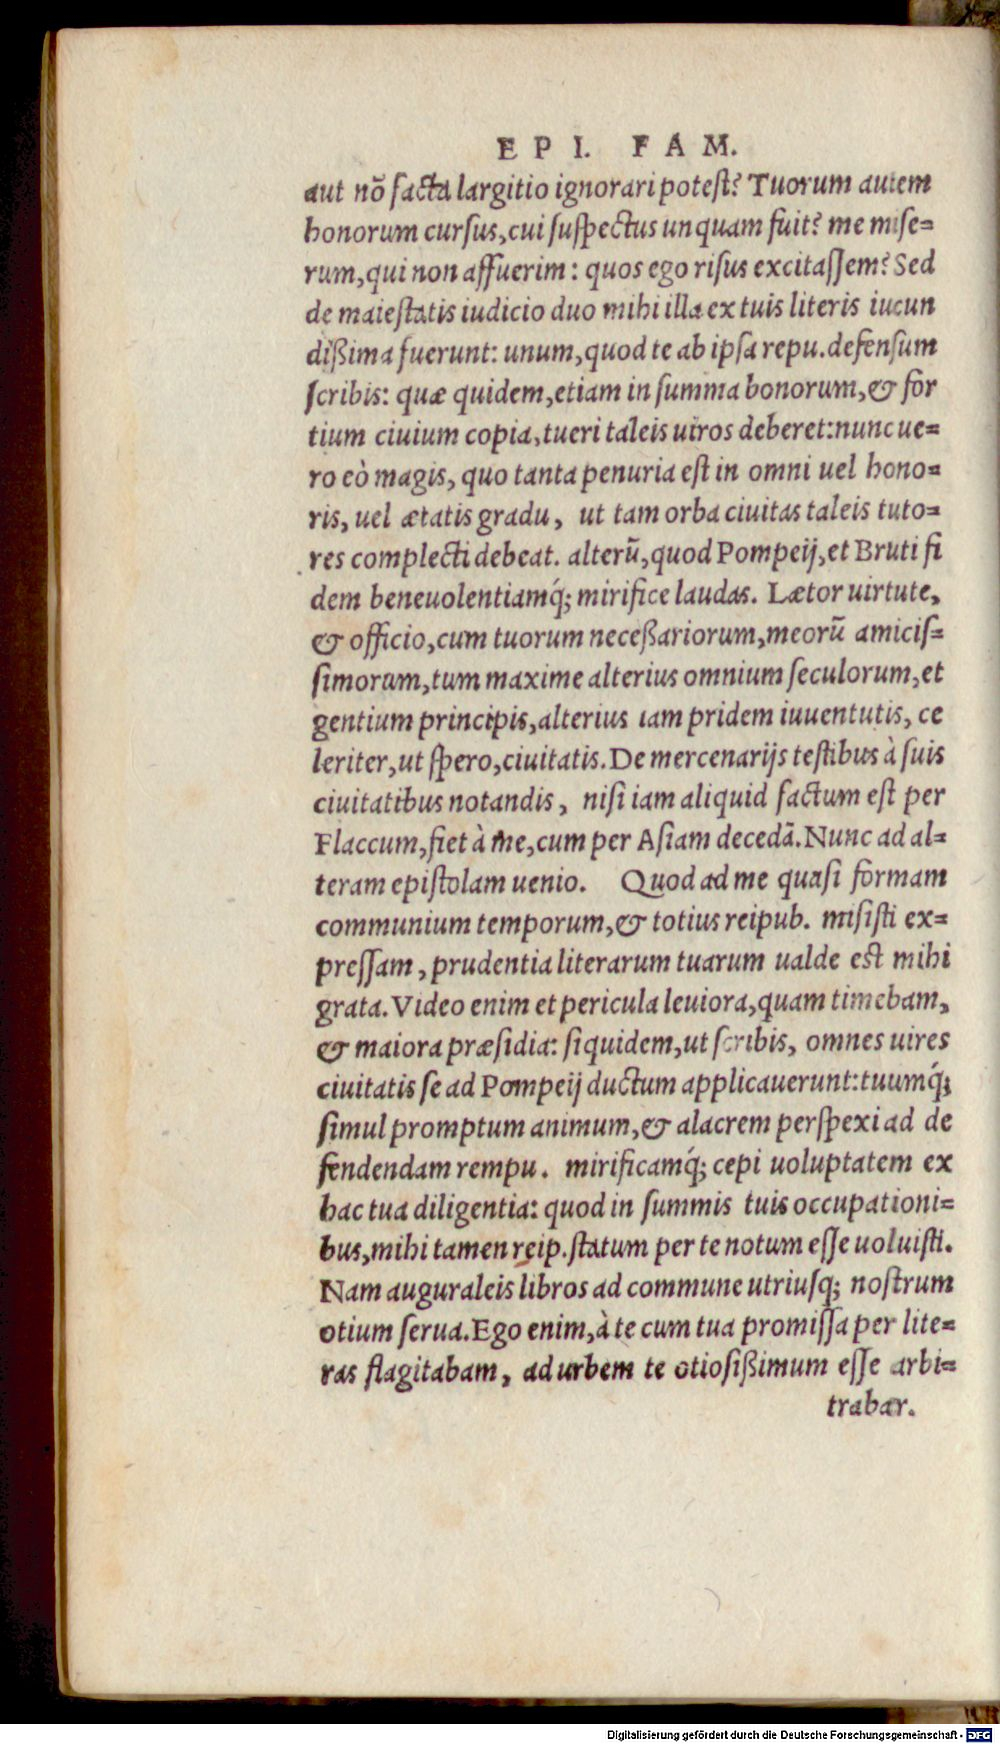 EPI. FAM.
aut nõ facta largitio ignorari potest? Tuorum autem
honorum cursus, cui suspectus unquam fuit? me mise=
rum, qui non affuerim: quos ego risus excitassem? Sed
de maiestatis iudicio duo mihi illa ex tuis literis iucun
dißima fuerunt: unum, quod te ab ipsa repu. defensum
scribis: quæ quidem, etiam in summa bonorum, & for
tium ciuium copia, tueri taleis uiros deberet: nunc ue=
ro eò magis, quo tanta penuria est in omni uel hono=
ris, uel ætatis gradu, ut tam orba ciuitas taleis tuto=
res complecti debeat. alterũ, quod Pompeij, et Bruti fi
dem beneuolentiamq́; mirifice laudas. Lætor uirtute,
& officio, cum tuorum neceßariorum, meorũ amicis=
simorum, tum maxime alterius omnium seculorum, et
gentium principis, alterius iam pridem iuuentutis, ce
leriter, ut spero, ciuitatis. De mercenarijs testibus à suis
ciuitatibus notandis, nisi iam aliquid factum est per
Flaccum, fiet à me, cum per Asiam decedã. Nunc ad al=
teram epistolam uenio. Quod ad me quasi formam
communium temporum, & totius reipub. misisti ex=
pressam, prudentia literarum tuarum ualde est mihi
grata. Video enim et pericula leuiora, quam timebam,
& maiora præsidia: siquidem, ut scribis, omnes uires
ciuitatis se ad Pompeij ductum applicauerunt: tuumq́;
simul promptum animum, & alacrem perspexi ad de
fendendam rempu. mirificamq́; cepi uoluptatem ex
hac tua diligentia: quod in summis tuis occupationi=
bus, mihi tamen reip. statum per te notum esse uoluisti.
Nam auguraleis libros ad commune utriusq; nostrum
otium serua. Ego enim, à te cum tua promissa per lite=
ras flagitabam, ad urbem te otiosißimum esse arbi=
trabar.
Digitalisierung gefördert durch die Deutsche Forschungsgemeinschaft - DFG